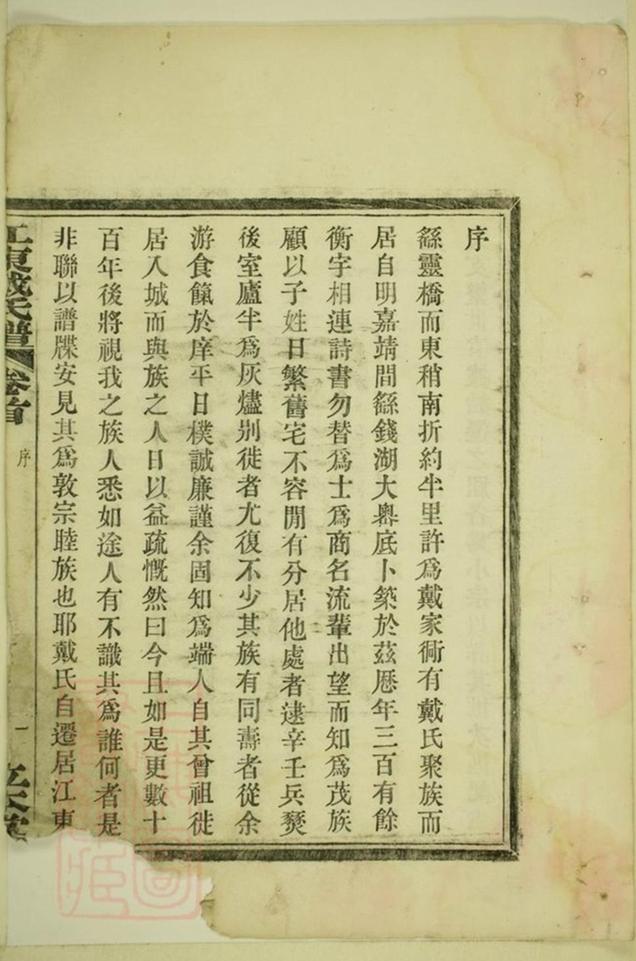 序
繇靈橋而東稍南折約半里許爲戴家衕有戴氏聚族而
居自明嘉靖間繇錢湖大嶴底卜築於茲歷年三百有餘
衡宇相連詩書勿替爲士爲商名流輩出望而知爲茂族
顧以子姓日繁舊宅不容閒有分居他處者逮辛壬兵燹
後室廬半爲灰燼别徙者尤復不少其族有同壽者從余
游食餼於庠平日樸誠廉謹余固知爲端人自其曾祖徙
居入城而與族之人日以益疏慨然曰今且如是更數十
百年後將視我之族人悉如途人有不識其爲誰何者是
非聯以譜牒安見其爲敦宗睦族也耶戴氏自遷居江東
江東戴氏譜 卷首 序 一